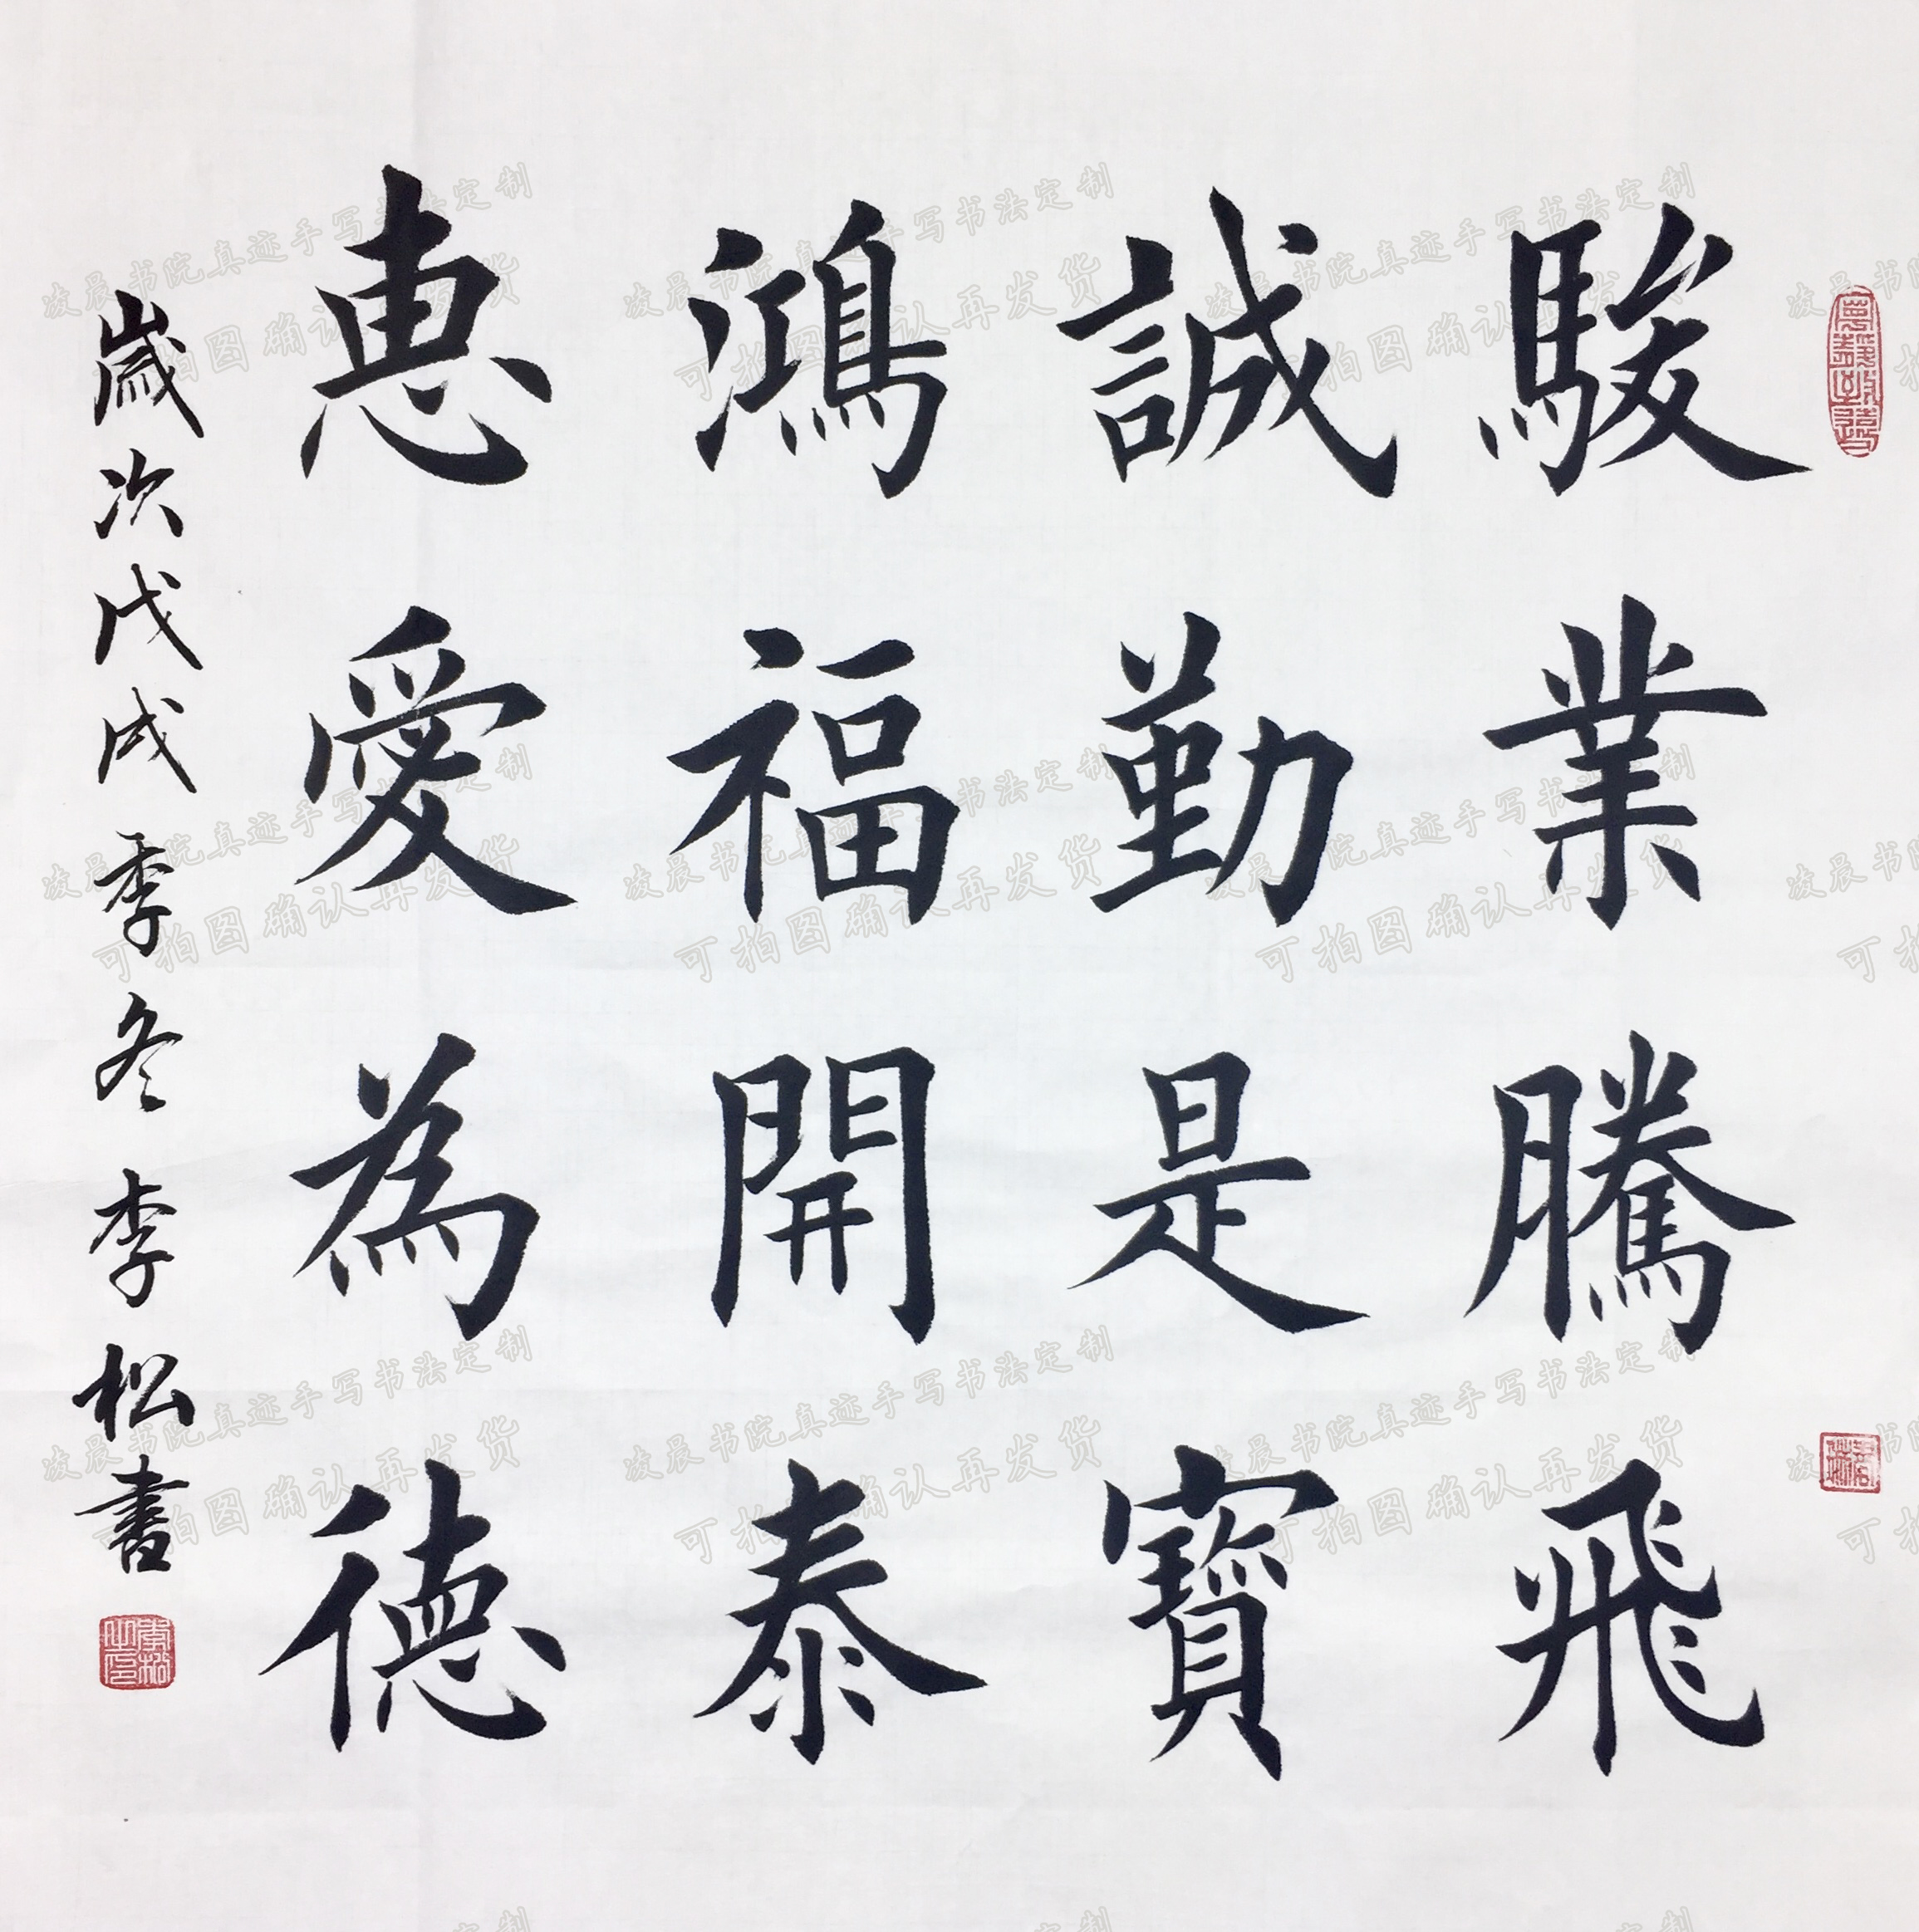 駿業騰飛
誠勤是寶
鴻福開泰
惠愛為德
歲次戊戌季冬李松書
李松之印
凌晨书院真迹手写书法定制
可拍图确认再发货